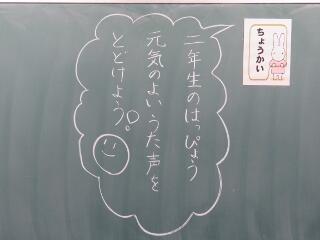 ちょうかい
二年生のはっぴょう
元気のよいうた声を
とどけよう。